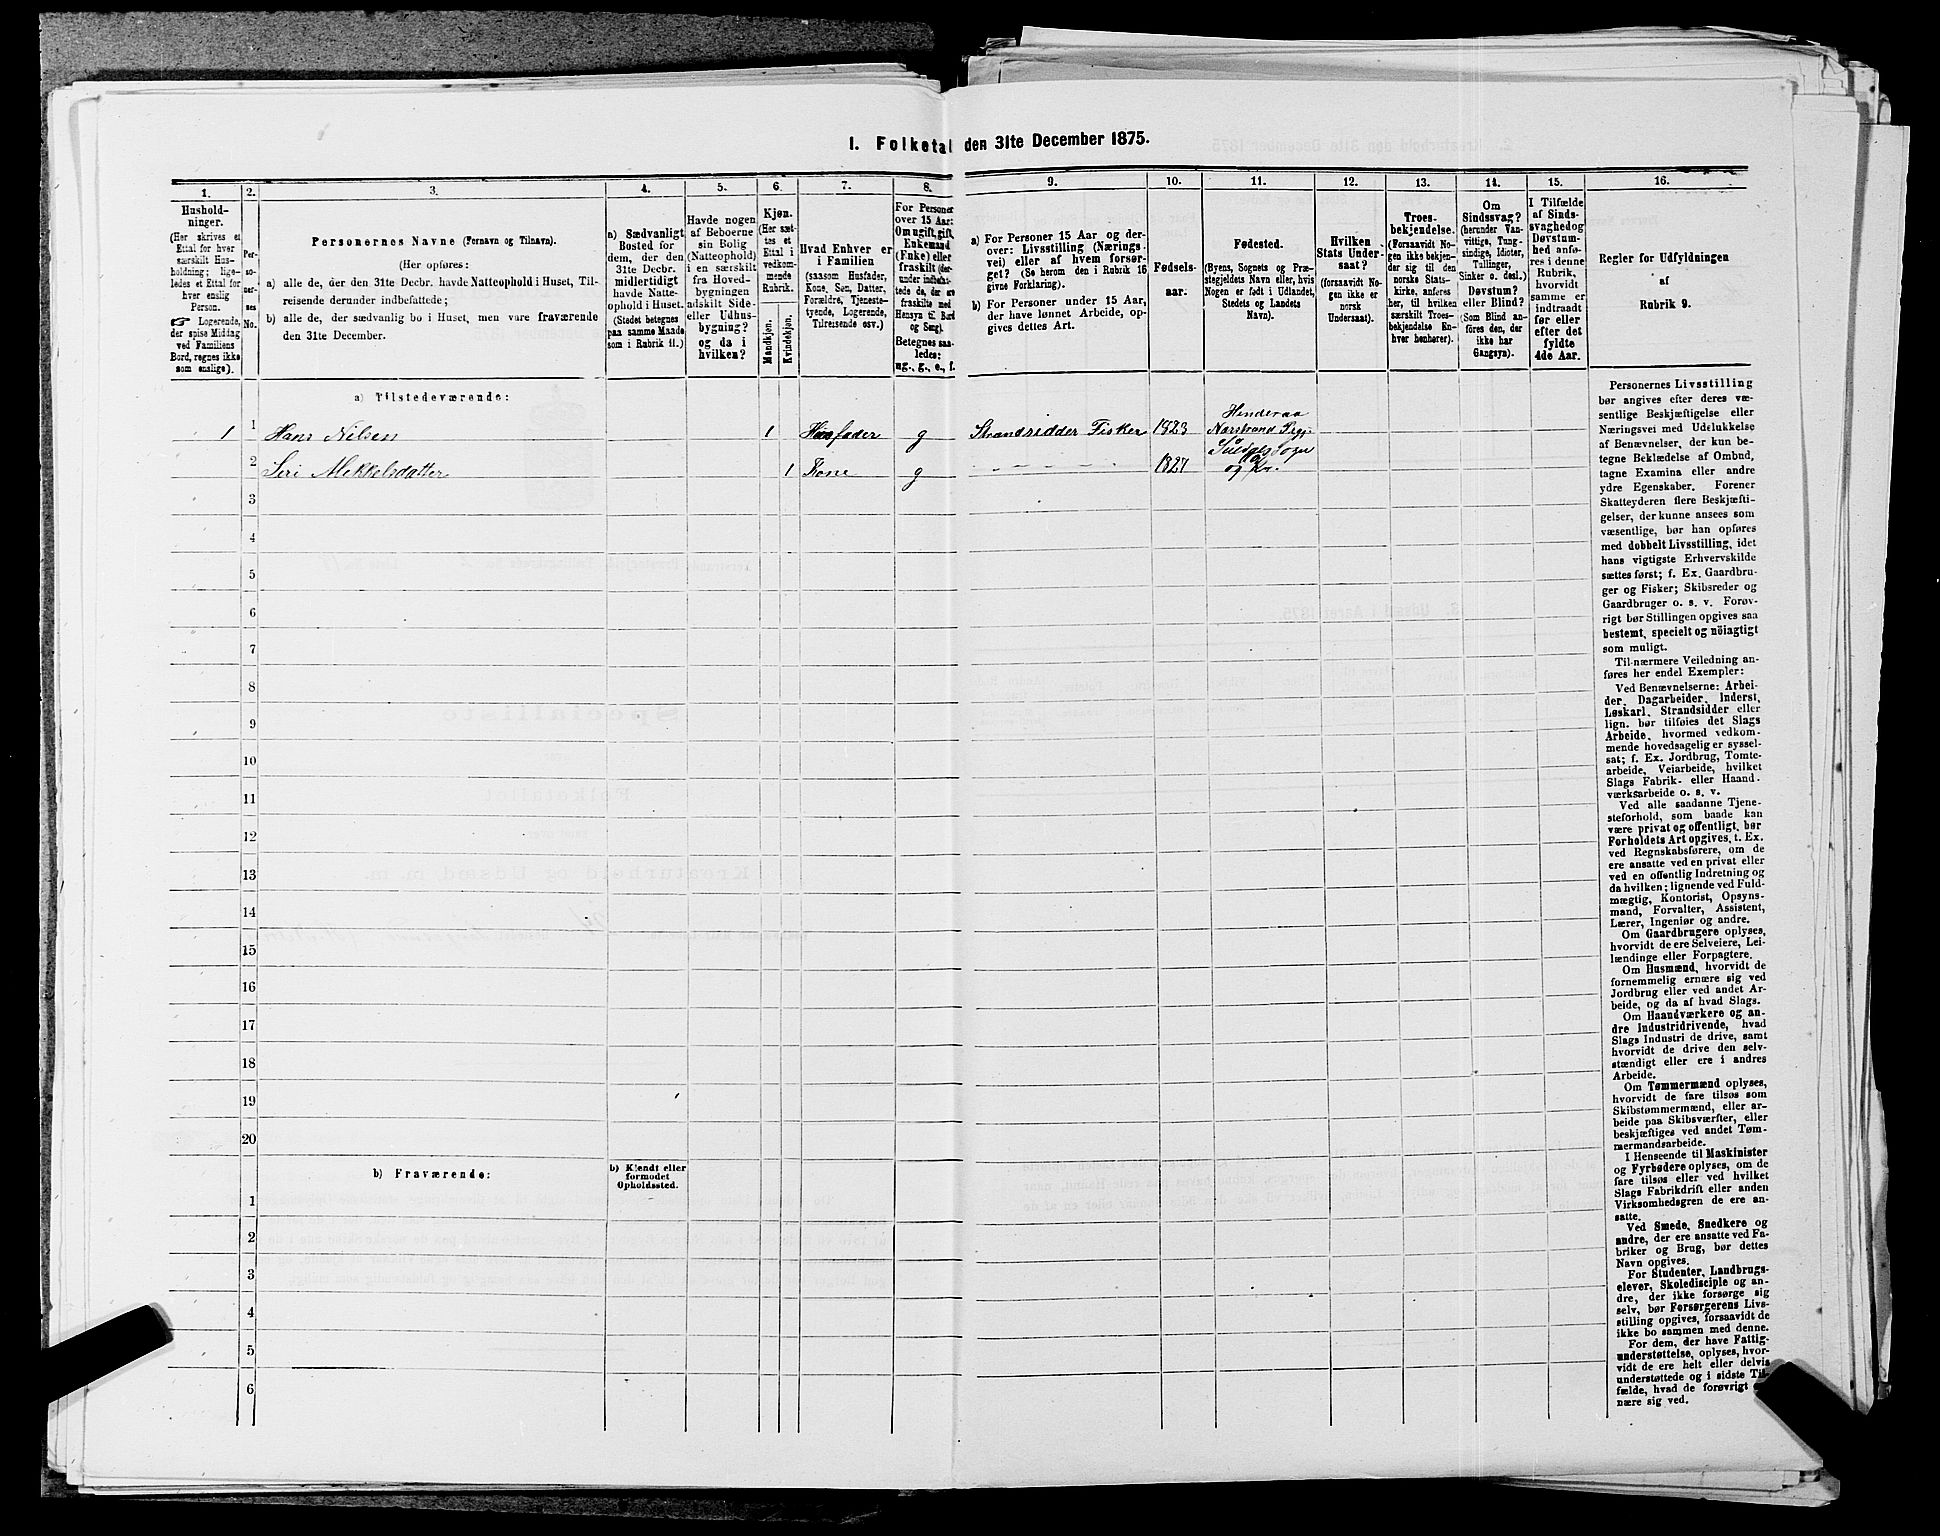 1. Folketal den 31te December 1875.
1.
2.
3.
4.
5.
6.
7.
8.
9.
10.
11.
12.
13.
14.
15.
16.
Hushold-
ninger.
(Her skrives et
Ettal for hver
særskilt Hus-
holdning; lige-
ledes et Ettal for
hver enslig
Person.
☞ Logerende,
der spise Middag
ved Familiens
Bord, regnes ikke
som enslige).
Per-
so-
ner-
nes
No.
Personernes Navne (Fornavn og Tilnavn).
(Her opføres:
a) alle de, der den 31te Decbr. havde Natteophold i Huset, Til-
reisende derunder indbefattede;
b) alle de, der sædvanlig bo i Huset, men vare fraværende
den 31te December.
a) Sædvanligt
Bosted for
dem, der den
31te Decbr.
midlertidigt
havde Natte-
ophold i Huset.
(Stedet betegnes
paa samme Maade
som i Rubrik 11.)
Havde nogen
af Beboerne
sin Bolig
(Natteophold)
i en særskilt
fra Hoved-
bygningen
adskilt Side-
eller Udhus-
bygning?
og da i
hvilken?
Kjøn.
(Her sæt-
tes et
Ettal i
vedkom-
mende
Rubrik.
Mandkjøn.
Kvindekjøn.
Hvad Enhver er
i Familien
(saasom Husfader,
Kone, Søn, Datter,
Forældre, Tjeneste-
tyende, Logerende,
Tilreisende osv.)
For Personer
over 15 Aar:
Om ugift, gift,
Enkemand
(Enke) eller
fraskilt (der-
under indbefat-
tede de, der ere
fraskilte med
Hensyn til Bord
og Seng).
Betegnes saa-
ledes:
ug., g., e., f.
a) For Personer 15 Aar og der-
over: Livsstilling (Nærings-
vei) eller af hvem forsør-
get? (Se herom den i Rubrik 16
givne Forklaring).
b) For Personer under 15 Aar,
der have lønnet Arbeide, op-
gives dettes Art.
Fødsels-
aar.
Fødested.
(Byens, Sognets og Præ-
stegjeldets Navn eller, hvis
Nogen er født i Udlandet,
Stedets og Landets
Navn).
Hvilken
Stats Under-
saat?
(forsaavidt No-
gen ikke er
norsk
Undersaat).
Troes-
bekjendelse.
(Forsaavidt No-
gen ikke bekjen-
der sig til den
norske Stats-
kirke, anføres
her, til hvilken
særskilt Troes-
bekjendelse En-
hver henhører).
Om
Sindssvag?
(herunder Van-
vittige, Tung-
sindige, Idioter,
Tullinger,
Sinker o. desl.)
Døvstum?
eller Blind?
(Som Blind an-
føres den, der
ikke har
Gangsyn).
I Tilfælde
af Sinds-
svaghed og
Døvstum-
hed anfø-
res i denne
Rubrik,
hvorvidt
samme er
indtraadt
før eller
efter det
fyldte
4de Aar.
Regler for Udfyldningen
af
Rubrik 9.
a) Tilstedeværende:
1 1 Hans Nilsen 1 Husfader g Strandsidder Fisker 1823 Henderaa
Narstrand Prgj.
2 Seri Mekkelsdatter 1 Kone g - - - - - - 1827 Suldals Sogn
og
3
4
5
6
7
8
9
10
11
12
13
14
15
16
17
18
19
20
b) Fraværende:
b) Kjendt eller
formodet
Opholdssted.
1
2
3
4
5
6
Personernes Livsstilling
bør angives efter deres væ-
sentlige Beskjæftigelse eller
Næringsvei med Udelukkelse
af Benævnelser, der kun be-
tegne Beklædelse af Ombud,
tagne Examina eller andre
ydre Egenskaber. Forener
Skatteyderen flere Beskjæfti-
gelser, der kunne ansees som
væsentlige, bør han opføres
med dobbelt Livsstilling, idet
hans vigtigste Erhvervskilde
sættes først; f. Ex. Gaardbru-
ger og Fisker; Skibsreder og
Gaardbruger o. s. v. Forøv-
rigt bør Stillingen opgives saa
bestemt, specielt og nöiagtigt
som muligt.
Til nærmere Veiledning an-
føres her endel Exempler:
Ved Benævnelserne: Arbei-
der, Dagarbeider, Inderst,
Løskarl, Strandsidder eller
lign. bør tilføies det Slags
Arbeide, hvormed vedkom-
mende hovedsagelig er syssel-
sat; f. Ex. Jordbrug, Tomte-
arbeide, Veiarbeide, hvilket
Slags Fabrik- eller Haand-
værksarbeide o. s. v.
Ved alle saadanne Tjene-
steforhold, som baade kan
være privat og offentligt, bør
Forholdets Art opgives, t. Ex.
ved Regnskabsførere, om de
ere ansatte ved en privat eller
ved en offentlig Indretning og
da hvilken; lignende ved Fuld-
mægtig, Kontorist, Opsyns-
mand, Forvalter, Assistent,
Lærer, Ingeniør og andre.
Om Gaardbrugere oplyses,
hvorvidt de ere Selveiere, Lei-
lændinge eller Forpagtere.
Om Husmænd, hvorvidt de
fornemmelig ernære sig ved
Jordbrug eller ved andet Ar-
beide, og da af hvad Slags.
Om Haandværkere og an-
dre Industridrivende, hvad
Slags Industri de drive, samt
hvorvidt de drive den selv-
stændigt eller ere i andres
Arbeide.
Om Tømmermænd oplyses,
hvorvidt de fare tilsøs som
Skibstømmermænd, eller ar-
beide paa Skibsværfter, eller
beskjæftiges ved andet Tøm-
mermandsarbeide.
I Henseende til Maskinister
og Fyrbødere oplyses, om de
fare tilsøs eller ved hvilket
Slags Fabrikdrift eller anden
Virksomhedsgren de ere an-
satte.
Ved Smede, Snedkere og
andre, der ere ansatte ved Fa-
briker og Brug, bør dettes
Navn opgives.
For Studenter, Landbrugs-
elever, Skoledisciple og an-
dre, der ikke forsørge sig
selv, bør Forsørgerens Livs-
stilling opgives, forsaavidt de
ikke bo sammen med denne.
For dem, der have Fattig-
understøttelse, oplyses, hvor-
vidt de ere helt eller delvis
understøttede og i sidste Til-
fælde, hvad de forøvrigt er-
nære sig ved.